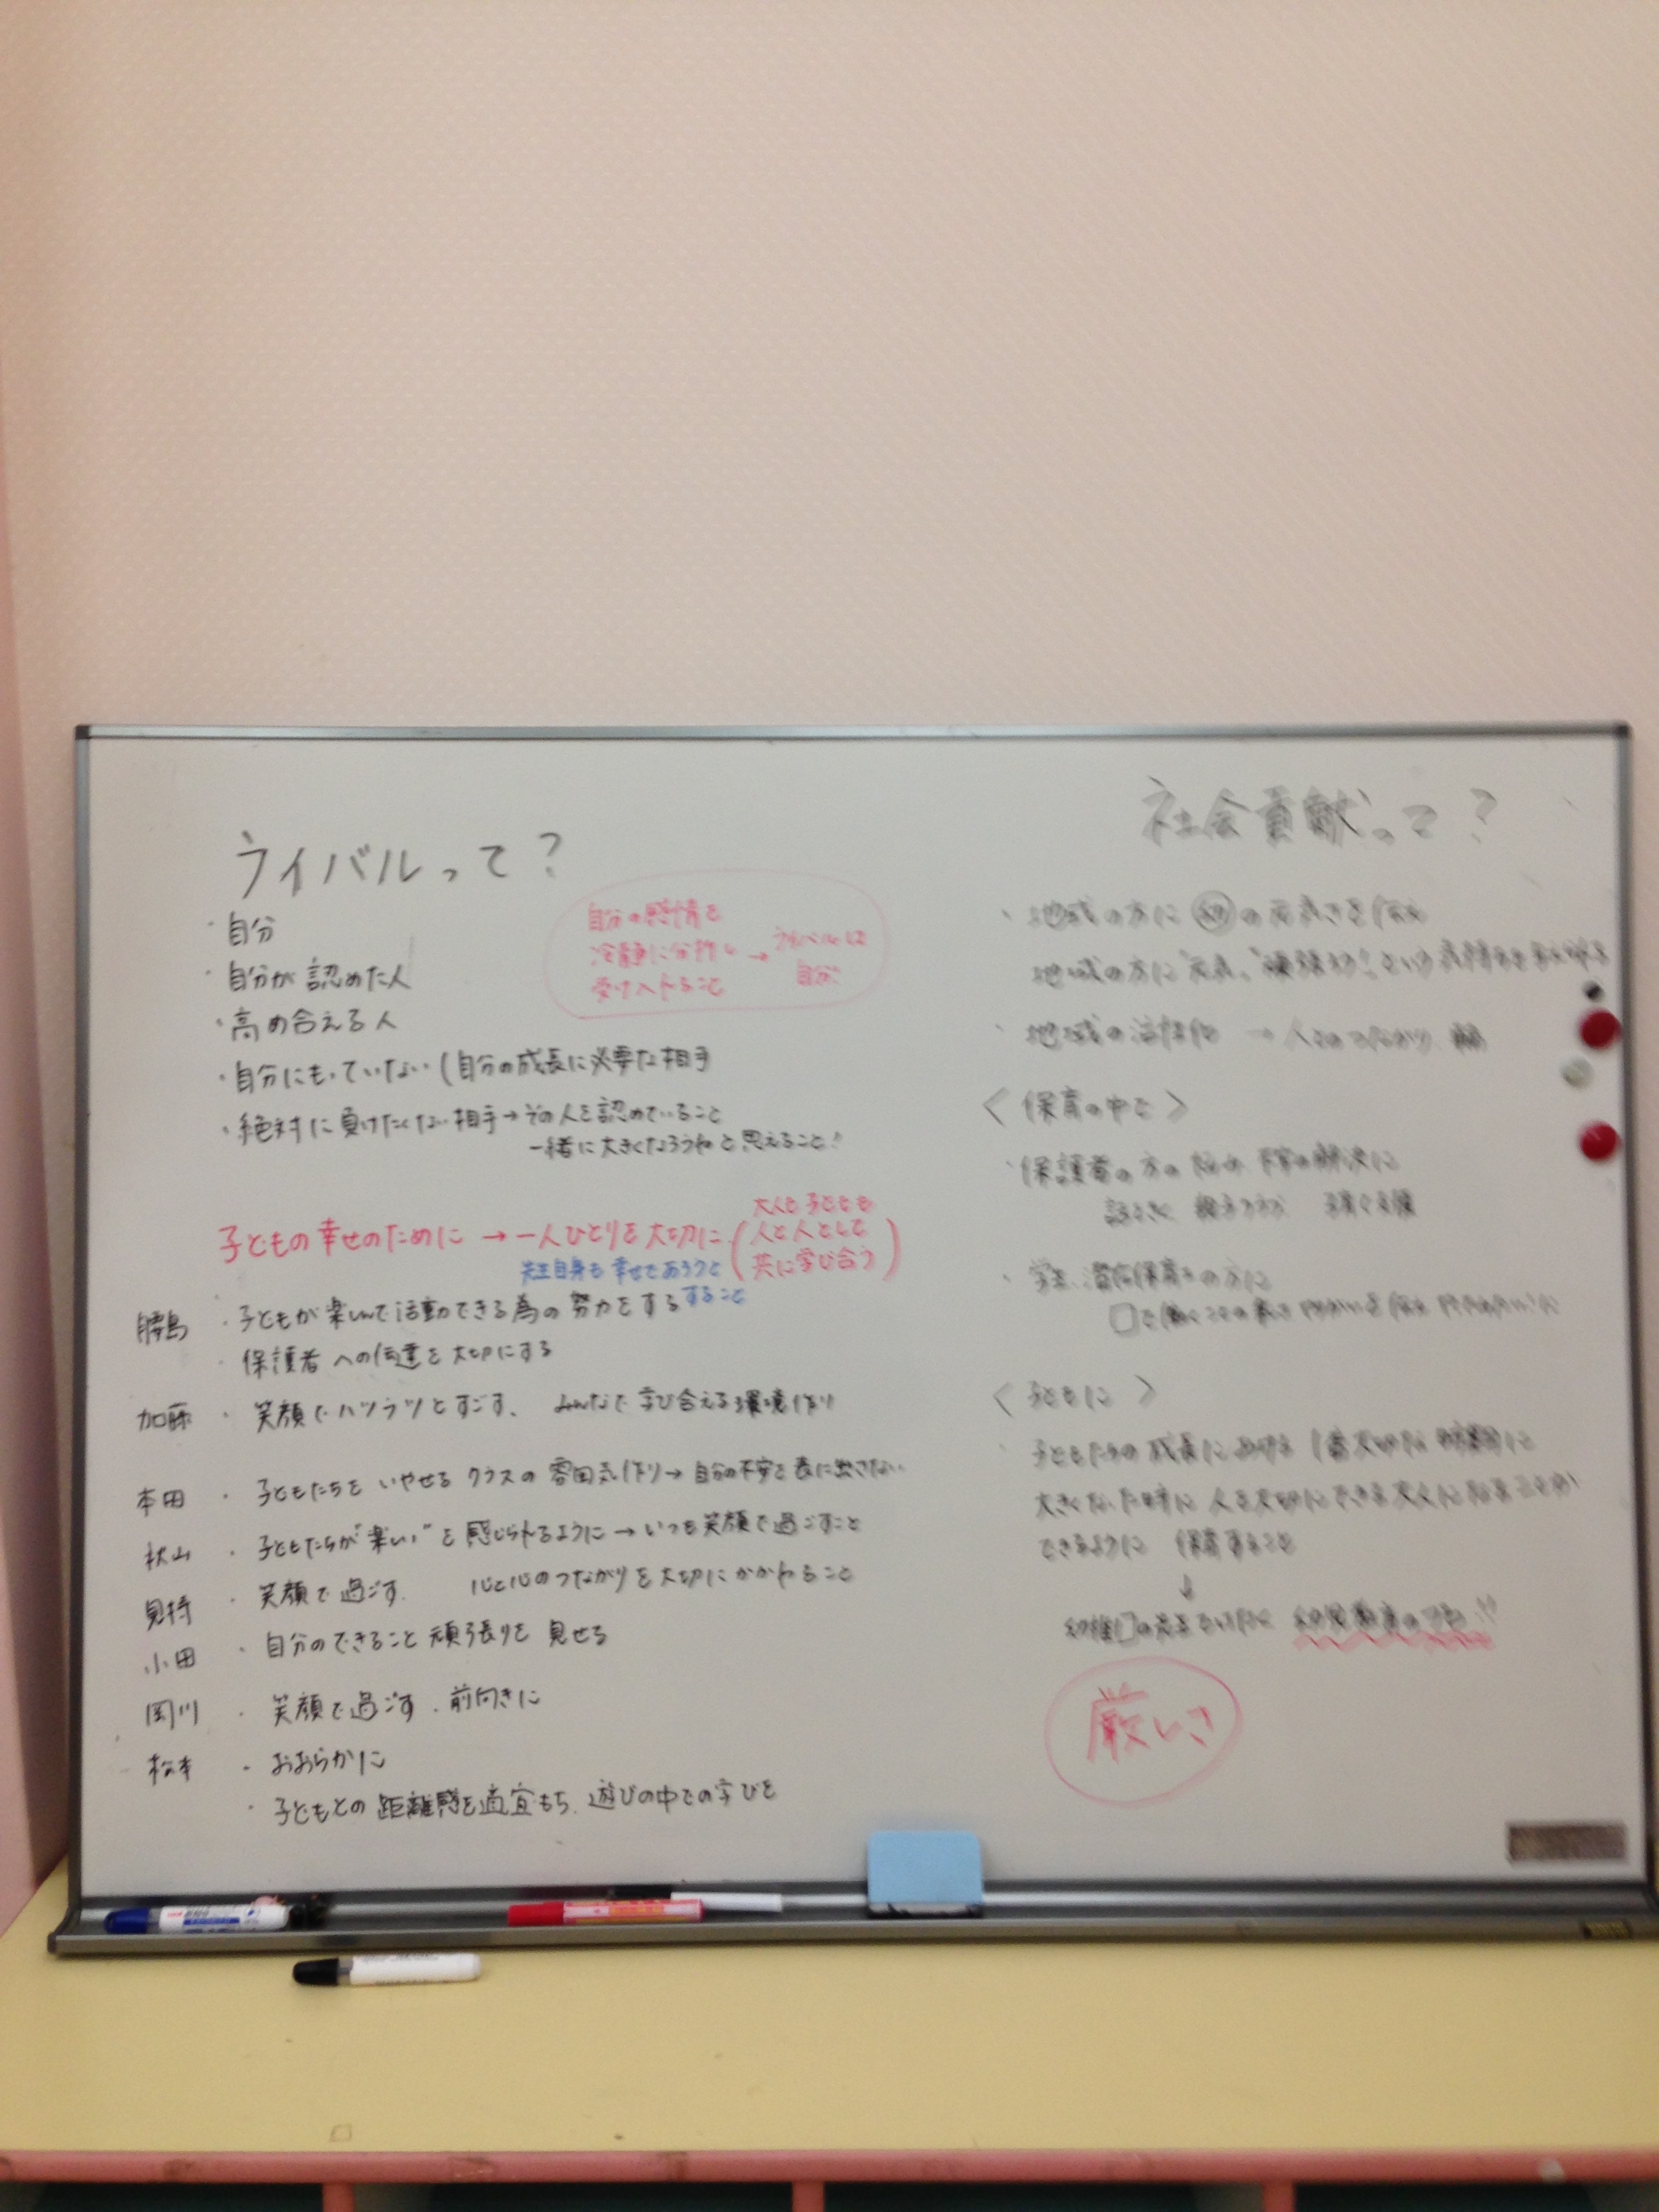 ライバルって?
・自分
・自分が認めた人
・高め合える人
・自分にもっていない(自分の成長に必要な相手
・絶対に負けたくない相手→その人を認めていること
一緒に大きくなろうねと思えること!
自分の感情を
冷静に分析し
受け入れること
→ライバルは
自分
子どもの幸せのために→一人ひとりを大切に
(大人も子どもも
人と人として
共に学び合う)
先生自身も幸せであろうと
すること
・子どもが楽しんで活動できる為の努力をする
・保護者への伝達を大切にする
加藤・笑顔でハツラツとすごす、みんなで学び合える環境作り
本田・子どもたちをいやせるクラスの雰囲気作り→自分の不安を表に出さない
秋山・子どもたちが"楽しい"を感じられるように→いつも笑顔で過ごすこと
・笑顔で過ごす 心と心のつながりを大切にかかわること
小田・自分のできること頑張りを見せる
岡川・笑顔で過ごす、前向きに
松本・おおらかに
・子どもとの距離感を適宜もち、遊びの中での学びを
社会貢献って?
・地域の方に
地域の方に
・地域の活性化→人とのつながり
〈保育の中で〉
・保護者の方の
・学生、
〈子どもに〉
・子どもたちの成長における1番大切な
大きくなった時に人を大切にできる大人になることが
できるように 保育すること
↓
厳しさ